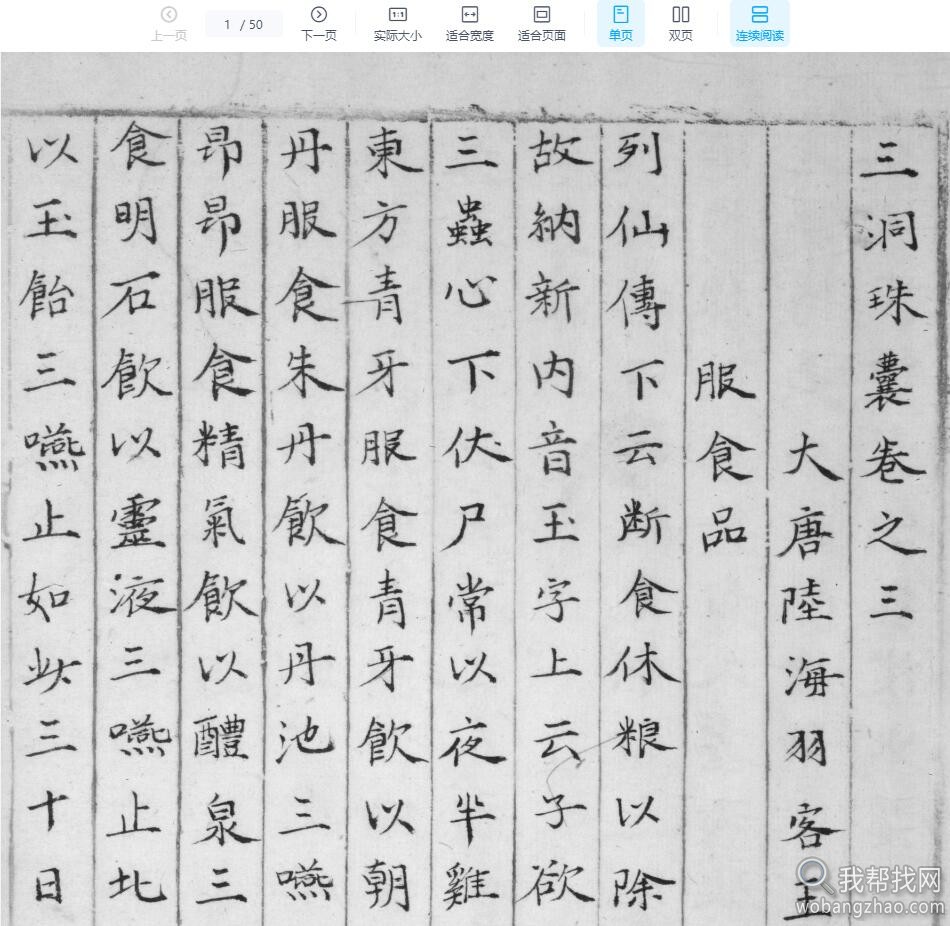 上一页 1 / 50 下一页 实际大小 适合宽度 适合页面 单页 双页 连续阅读
三洞珠囊卷之三
大唐陸海羽客王
服食品
列仙傳下云断食休粮以除
故納新内音玉字上云子欲
三蟲心下伏尸常以夜半雞
東方青牙服食青牙飲以朝
丹服食朱丹飲以丹池三嚥
昂昂服食精氣飲以醴泉三
食明石飲以靈液三嚥止北
以玉飴三嚥止如此三十日
我帮找网
wobangzhao.com